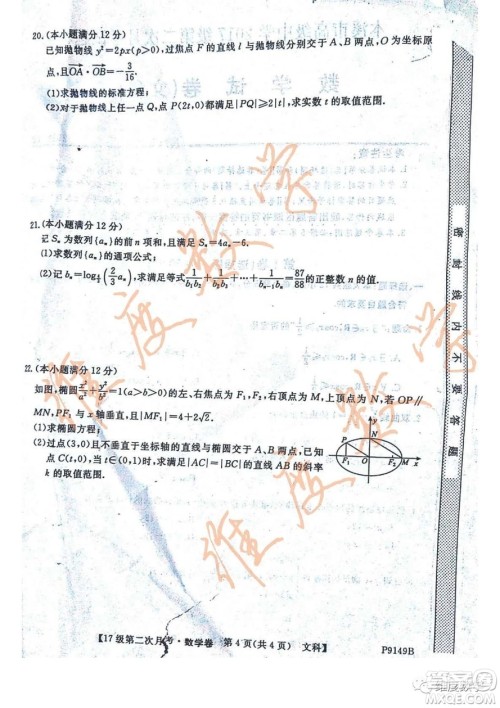 20. (本小题满分 12 分)
已知抛物线 y²=2px(p>0),过焦点 F 的直线 l 与抛物线分别交于 A、B 两点,O 为坐标原
点,且 OA·OB=-3/16.
(1)求抛物线的标准方程;
(2)对于抛物线上任一点 Q,点 P(2t,0)都满足|PQ|≥2|t|,求实数 t 的取值范围.
21. (本小题满分 12 分)
记 Sₙ 为数列{aₙ}的前 n 项和,且满足 Sₙ=4aₙ-6.
(1)求数列{aₙ}的通项公式;
(2)记 bₙ=log_{4/3}(2/3 aₙ),求满足等式 1/(b₁b₂)+1/(b₂b₃)+…+1/(bₙ₋₁bₙ)=87/88 的正整数 n 的值.
22. (本小题满分 12 分)
如图,椭圆 x²/a²+y²/b²=1(a>b>0)的左、右焦点为 F₁,F₂,右顶点为 M,上顶点为 N,若 OP//
MN,PF₁ 与 x 轴垂直,且|MF₁|=4+2√2.
(1)求椭圆方程;
(2)过点(3,0)且不垂直于坐标轴的直线与椭圆交于 A,B 两点,已
知点 C(t,0),当 t∈(0,1)时,求满足|AC|=|BC|的直线 AB 的斜率
k 的取值范围.
y
P
N
F₁
O
F₂
M
x
密封线内不要答题
维度数学
维度数学
【17 级第二次月考·数学卷 第 4 页(共 4 页) 文科】
P9149B